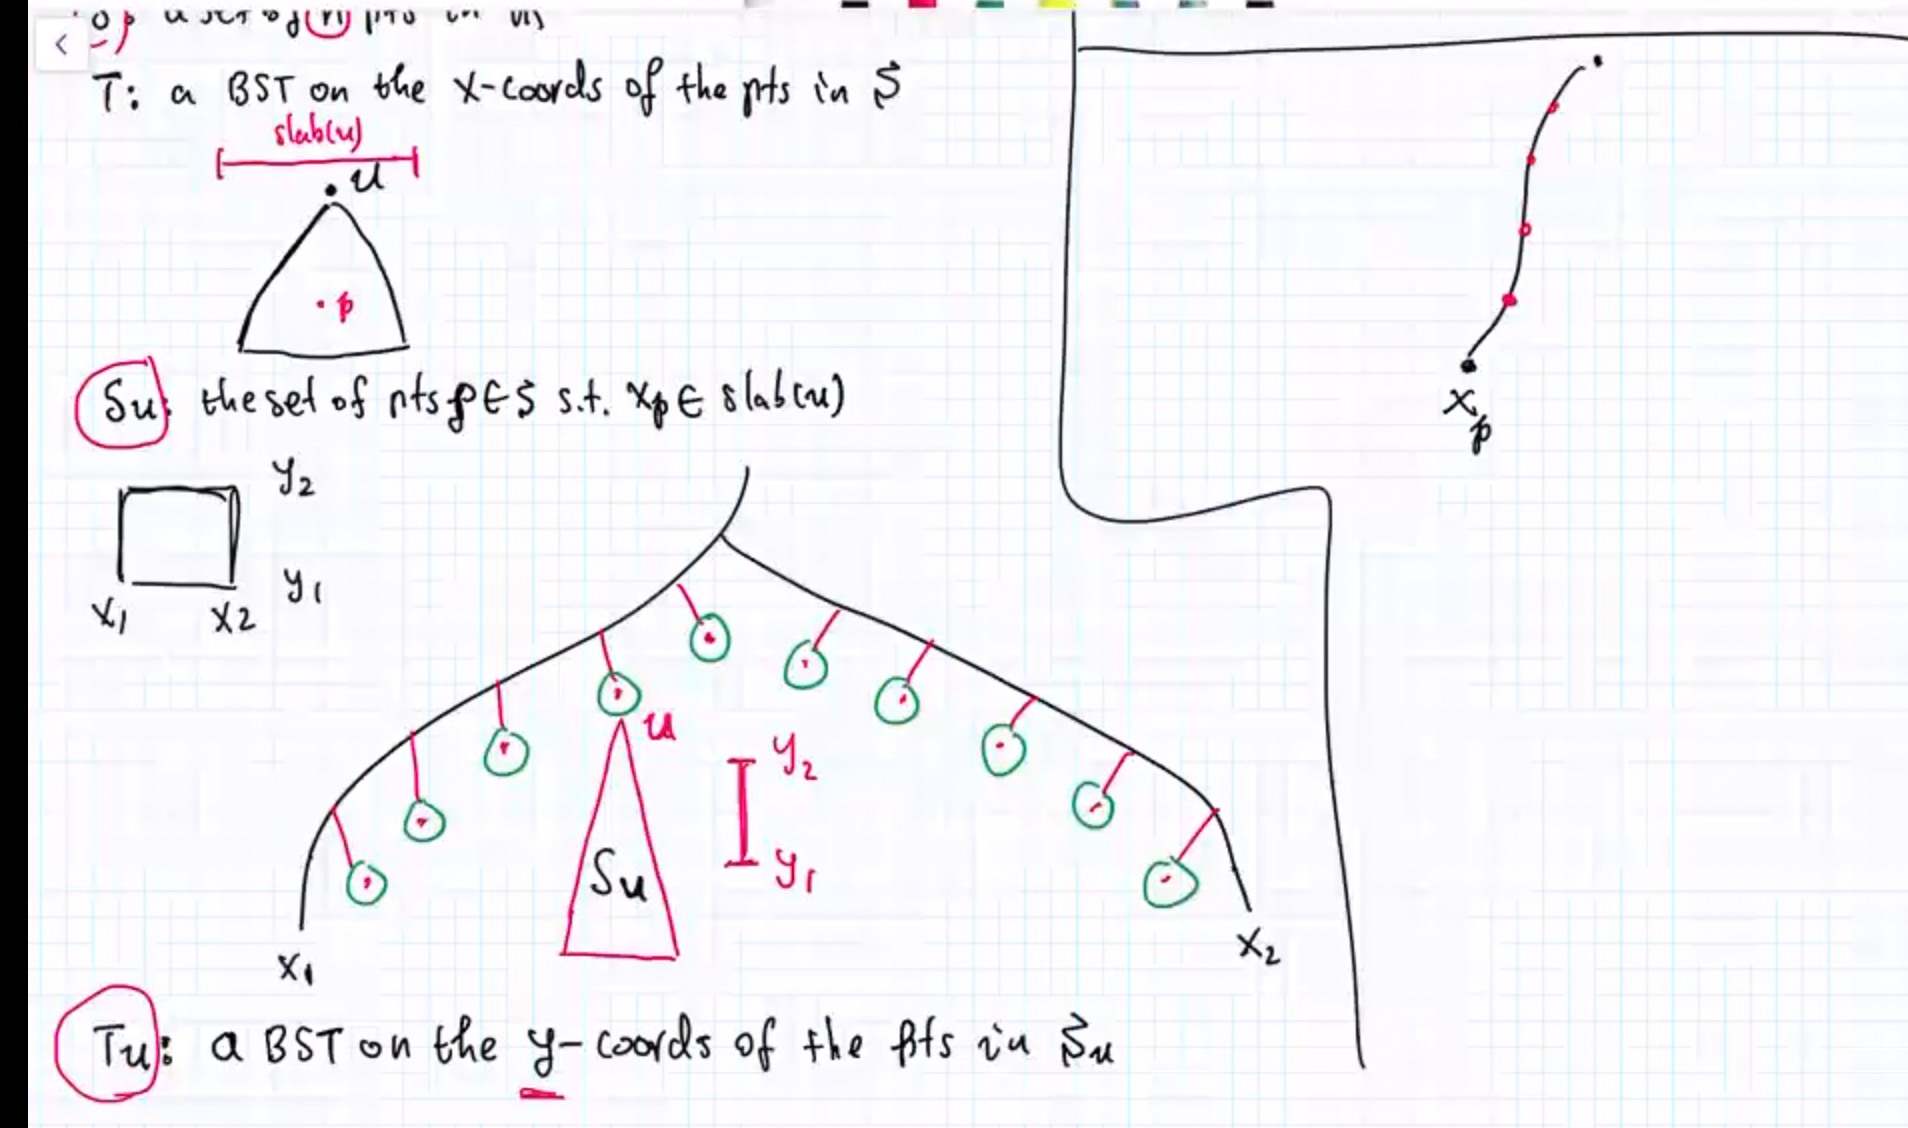 T: a BST on the x-coords of the pts in S
slab(u)
u
p
Su: the set of pts p ∈ S s.t. xp ∈ slab(u)
y2
y1
x1 x2
u
y2
Su
y1
x1
x2
Tu: a BST on the y-coords of the pts in Su
xp